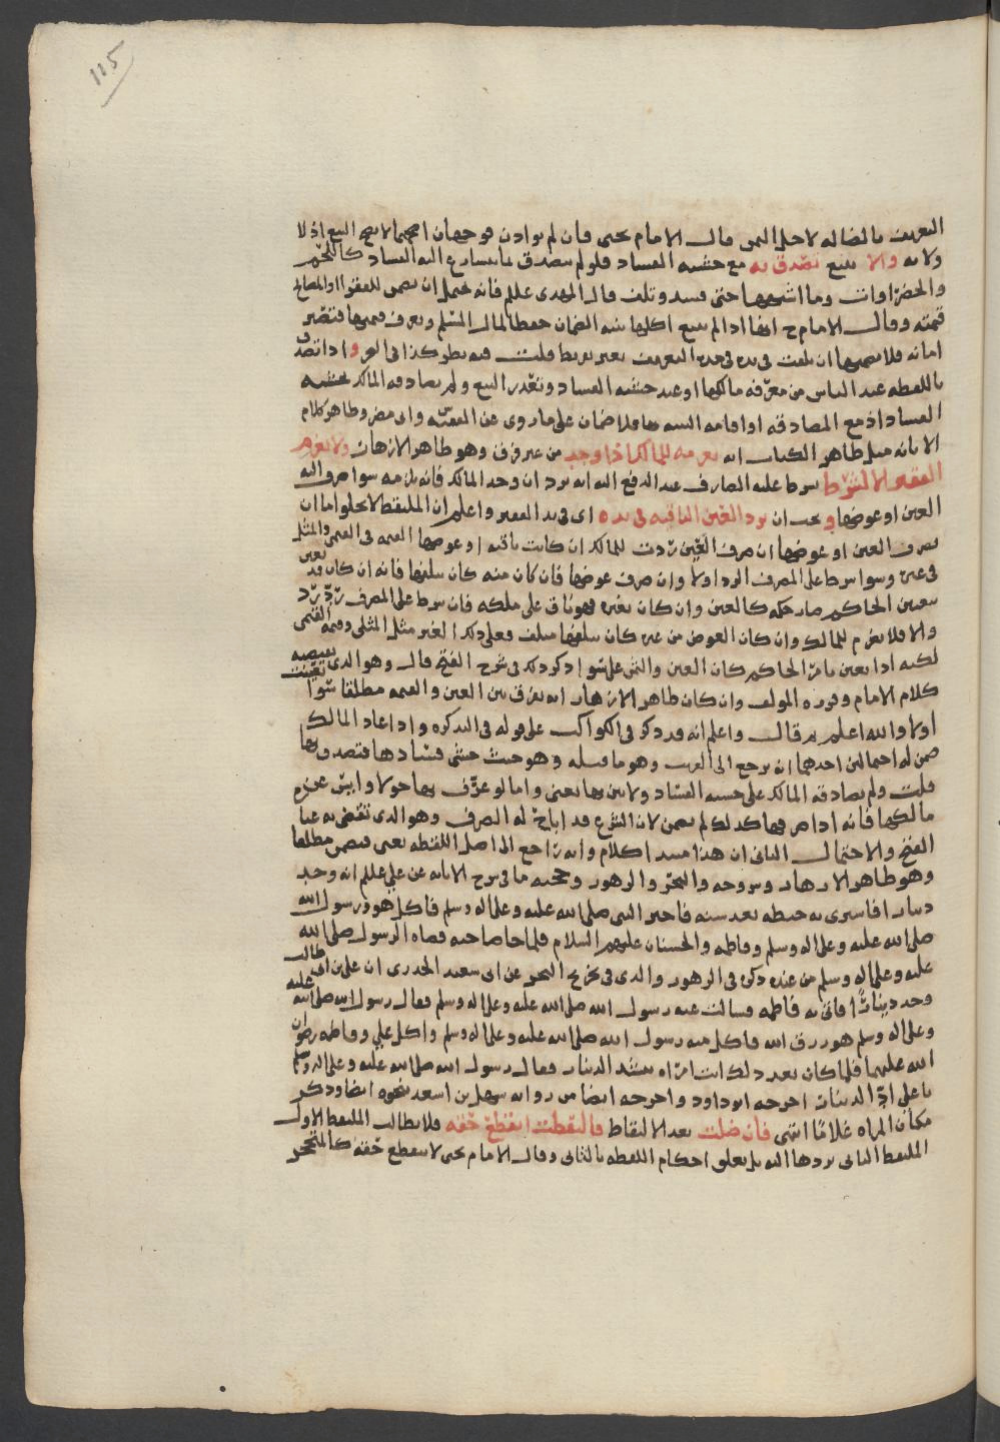 115
التعريف بالضاله لاجل الثمن قال الامام يحيى فان لم يوادن فوجهان اصحهما لا يصح البيع اذ لا
ولايه والا يبتع تصدق به مع خشيه الفساد فلو لم يتصدق بما يسارع اليه الفساد كاللحم
والخضراوات وما اشبهها حتى فسد وتلف قال المهدي عللم فانه يحتمل ان يضمن للفقرا او المصالح
قيمته وقال الامام ح ايضا اذا لم يبتع اكلها بنيه الضمان حفظا لمال المسلم ويعرف قيمتها فتصير
امانه فلا يضمنها ان تلفت في يده في مده التعريف بغير تفريط قلت فيه نظر كذا في الغيث واذا تصدق
باللقطه عند الياس من معرفه مالكها او عند خشيه الفساد وتعذر البيع ولم يصادقه المالك بخشيه
الفساد اذ مع المصادقه او اقامه البينه بها فلا ضمان على ما روي عن الفقيه وابى مضر وظاهر كلام
الابانه مثل ظاهر الكتاب انه يغرمه للمالك اذا وجد من غير فرق وهو ظاهر الازهار ولا يغرم
الفقير الا لشرط شرط عليه الصارف عند الدفع اليه انه يرد ان وجد المالك فانه يلزمه سوا صرف اليه
العين او عوضها ويجب ان يرد العين الباقيه في يده اى في يد الفقير واعلم ان الملتقط لا يخلوا اما ان
يصرف العين او عوضها ان صرف العين ردت للمالك ان كانت باقيه او عوضها القيمه في القيمي والمثل
في غيره وسوا شرط على المصرف الرد اولا وان صرف عوضها فان كان منه كان سلعها فانه ان كان قد تعين
بتعيين الحاكم صار حكمه كالعين وان كان بغيره فهو باق على ملكه فان شرط على المصرف رد رد
والا فلا يغرم للمالك وان كان العوض من غيره كان سلعها فعلى ذلك الغير مثل المثلي وقيمه القيمي
لكنه اذا تعين بامر الحاكم كان العين والثمن على سوا ذكر ذلك في شرح الفتح قال وهو الذي يقتضيه
كلام الامام وقرره المولف وان كان ظاهر الازهار انه يفرق بين العين والقيمه مطلقا سوا تعينت
اولا والله اعلم ثم قال واعلم انه قد ذكر في الكواكب على قوله في التذكره واذا عاد المالك
ضمن له احتمالين احدهما ان يرجع الى القريب وهو ما قبله وهو حيث خشي فسادها فتصدق بها
قلت ولم يصادقه المالك على خشيه الفساد ولا بين بها يعني واما لو عرف بها حولا وايس عن
مالكها فانه اذا صرفها كذلك لم يضمن لان الشرع قد اباح له الصرف وهو الذي تقضى به عبارة
الفتح والاحتمال الثاني ان هذا مبتدا كلام وانه راجع الى اصل اللقطه يعني فيضمن مطلقا
وهو ظاهر الازهار وشروحه والبحر والزهور وحجته ما في شرح الابانه عن علي عللم انه وجد
دينارا فاشترى به حنطه بعد سنه فاخبر النبى صلى الله عليه وعلى اله وسلم فاكل هو ورسول الله
صلى الله عليه وعلى اله وسلم وفاطمه والحسنان عليهم السلام فلما جا صاحبه قضاه الرسول صلى الله
عليه وعلى اله وسلم من عنده ذكره في الزهور والذي في تخريج البحر عن ابى سعيد الخدري ان علي بن ابى طالب
وجد دينارا فاتى به فاطمه فسالت عنه رسول الله صلى الله عليه وعلى اله وسلم فقال رسول الله صلى الله عليه
وعلى اله وسلم هو رزق الله فاكل منه رسول الله صلى الله عليه وعلى اله وسلم واكل علي وفاطمه رضوان
الله عليهما فلما كان بعد ذلك اتت امراه تنشد الدينار فقال رسول الله صلى الله عليه وعلى اله وسلم
يا علي اد الدينار اخرجه ابو داود واخرجه ايضا من روايه سهل بن سعد بنحوه ايضا وذكر
مكان المراه غلاما انتهى فان ضلت بعد الالتقاط فالتقطت انقطع حقه فلا يطالب الملتقط الاول
الملتقط الثاني بردها اليه بل يتعلق احكام اللقطه بالثاني وقال الامام يحيى لا ينقطع حقه كالمتحجر